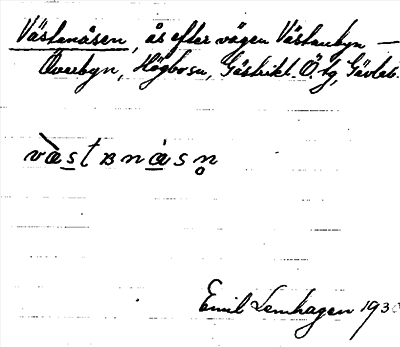 Västanåsen, ås efter vägen Västanbyn —
Överbyn, Högbo sn, Gästrikl. Ö tg, Gävleb.
väst ɐnåsn̥
Emil Lemhagen 193